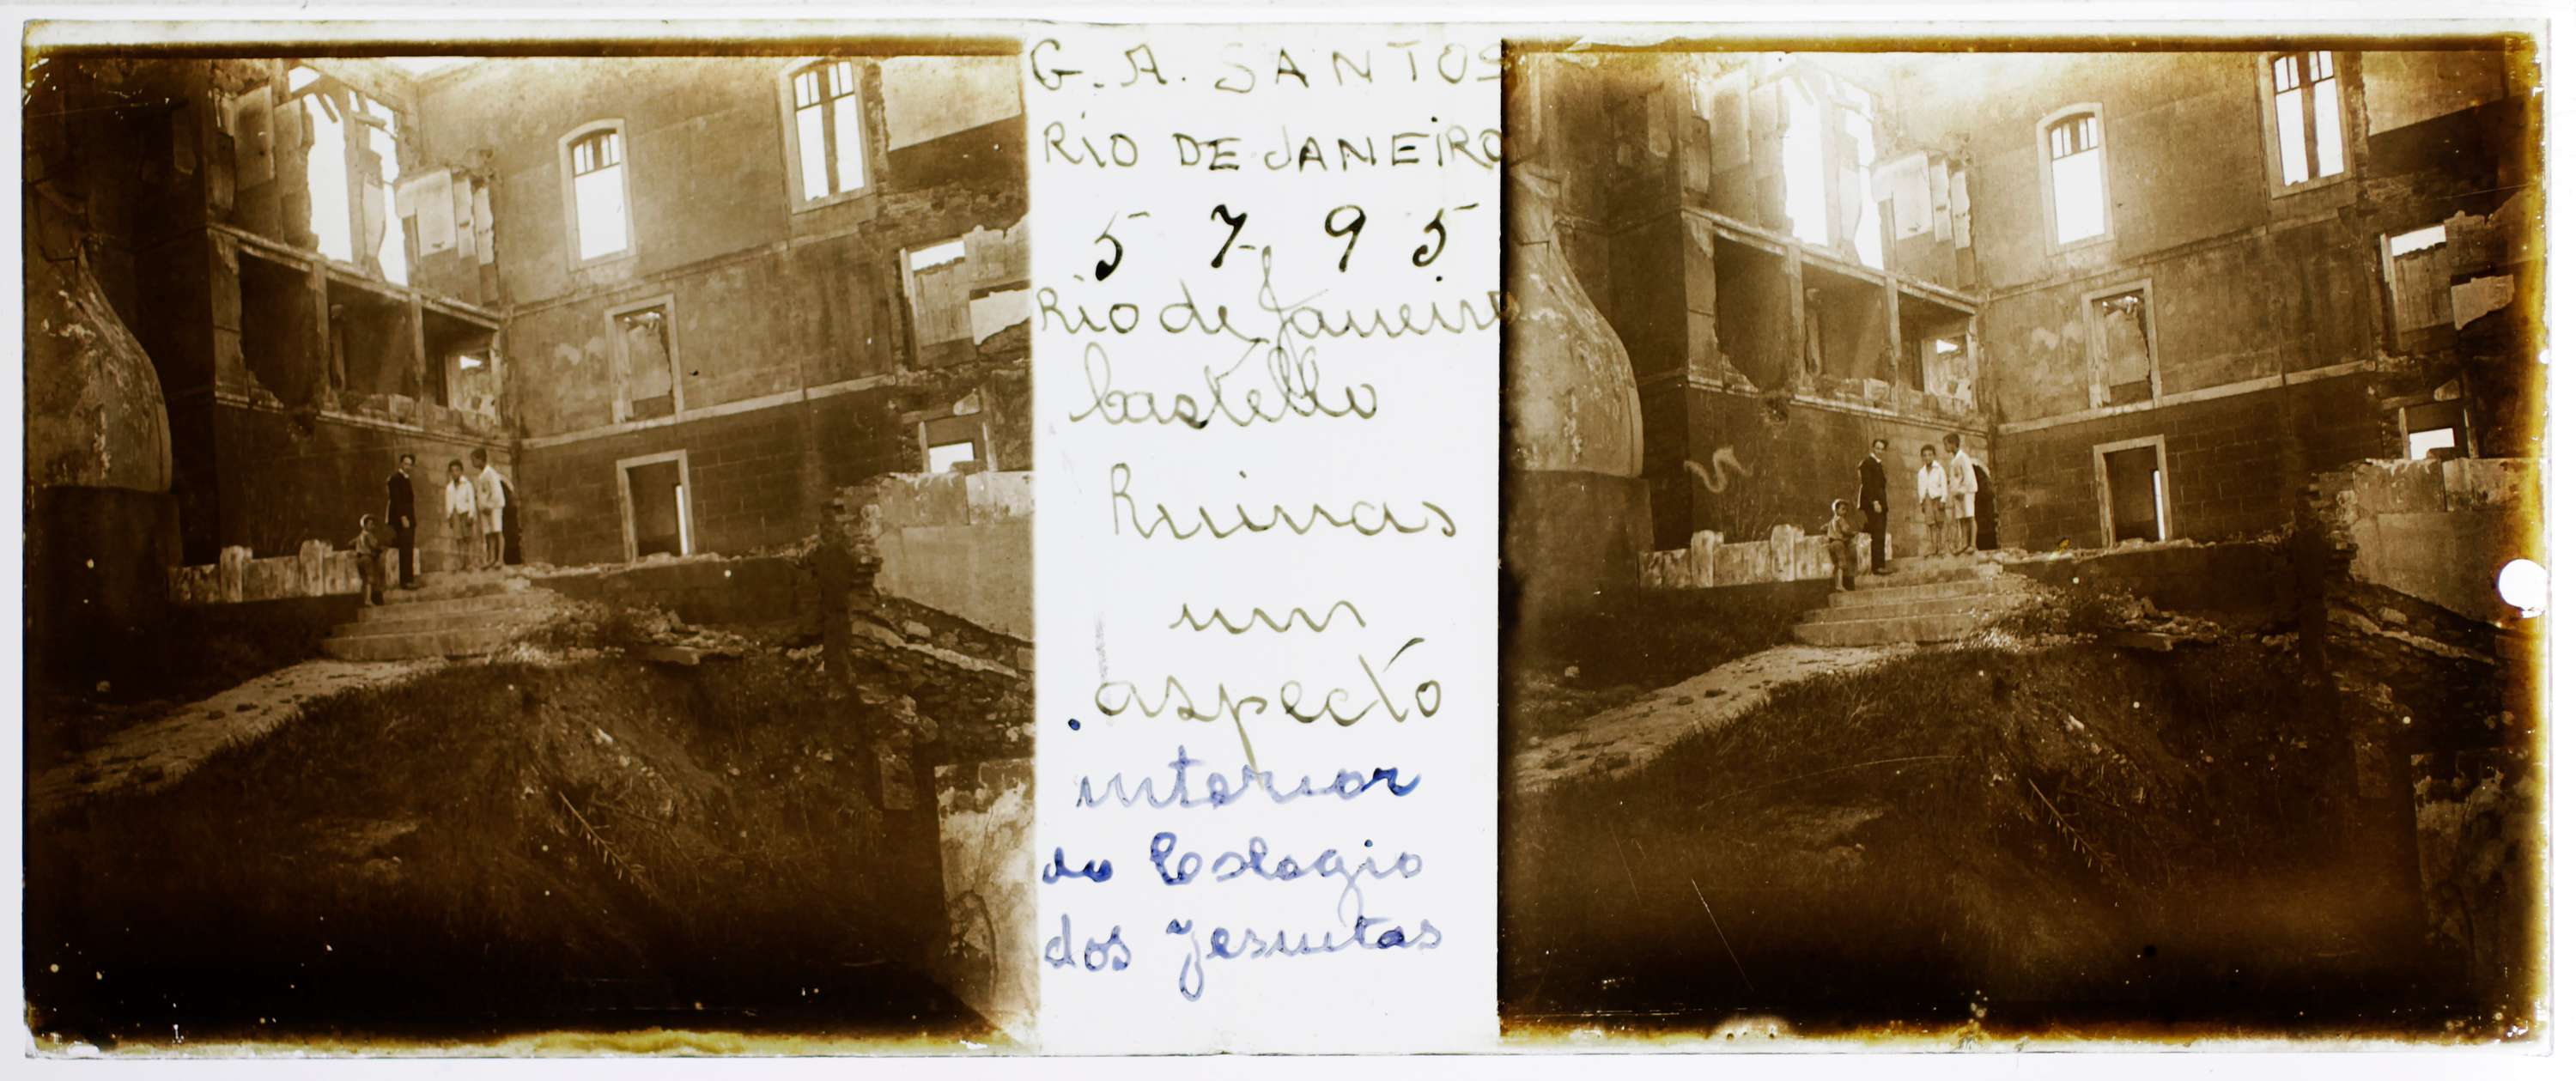 G. A. SANTOS
RIO DE JANEIRO
5 7 9 5
Rio de Janeiro
Castello
Ruinas
um
aspecto
interior
do Colegio
dos Jesuitas